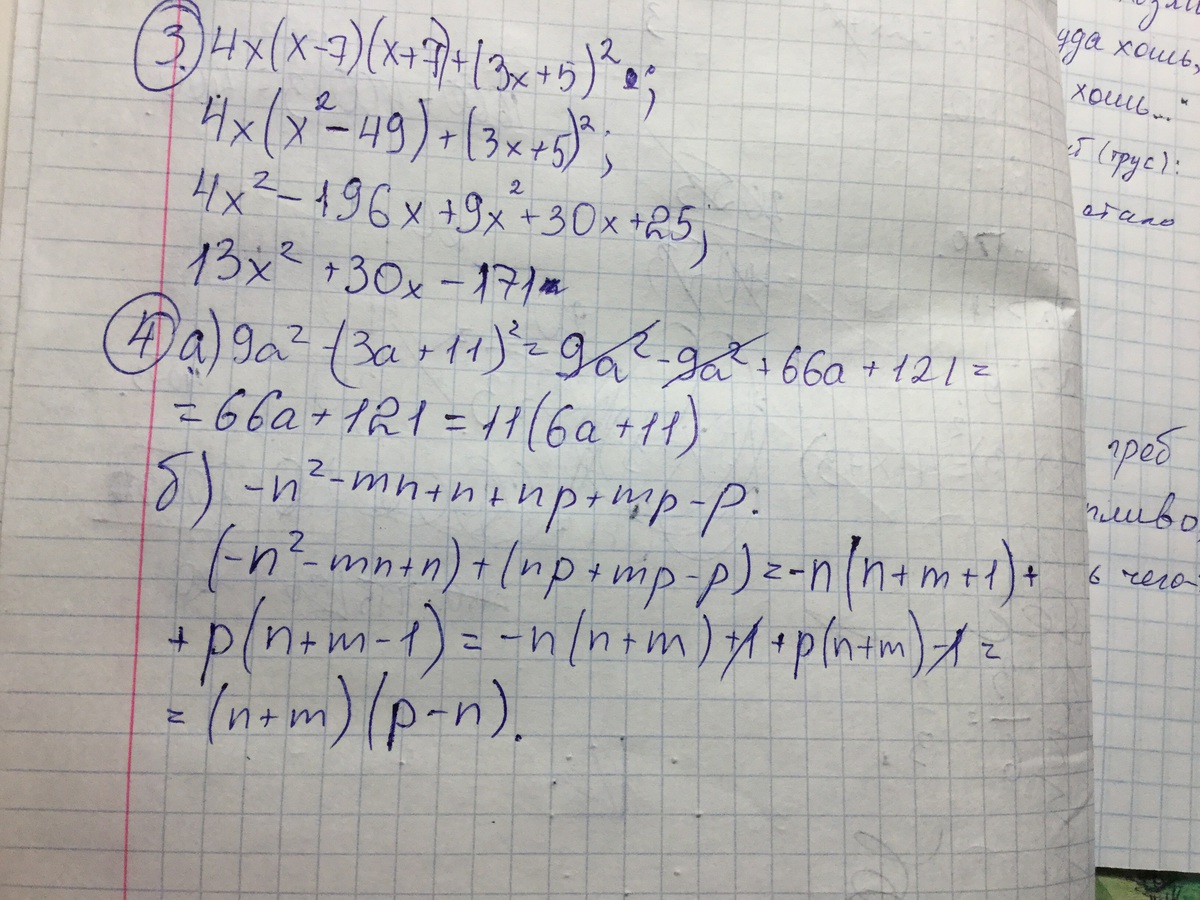 3. 4x(x-7)(x+7)+(3x+5)²;
4x(x²-49)+(3x+5)²;
4x²-196x+9x²+30x+25;
13x²+30x-171
4 а) 9a²-(3a+11)²=9a²-9a²+66a+121=
=66a+121=11(6a+11)
б) -n²-mn+n+np+mp-p:
(-n²-mn+n)+(np+mp-p)=-n(n+m+1)+
+p(n+m-1)=-n(n+m)+1+p(n+m)-1=
=(n+m)(p-n).
уда хошь,
хошь..."
(трус):
стало
греб
пливо,
ь чего-